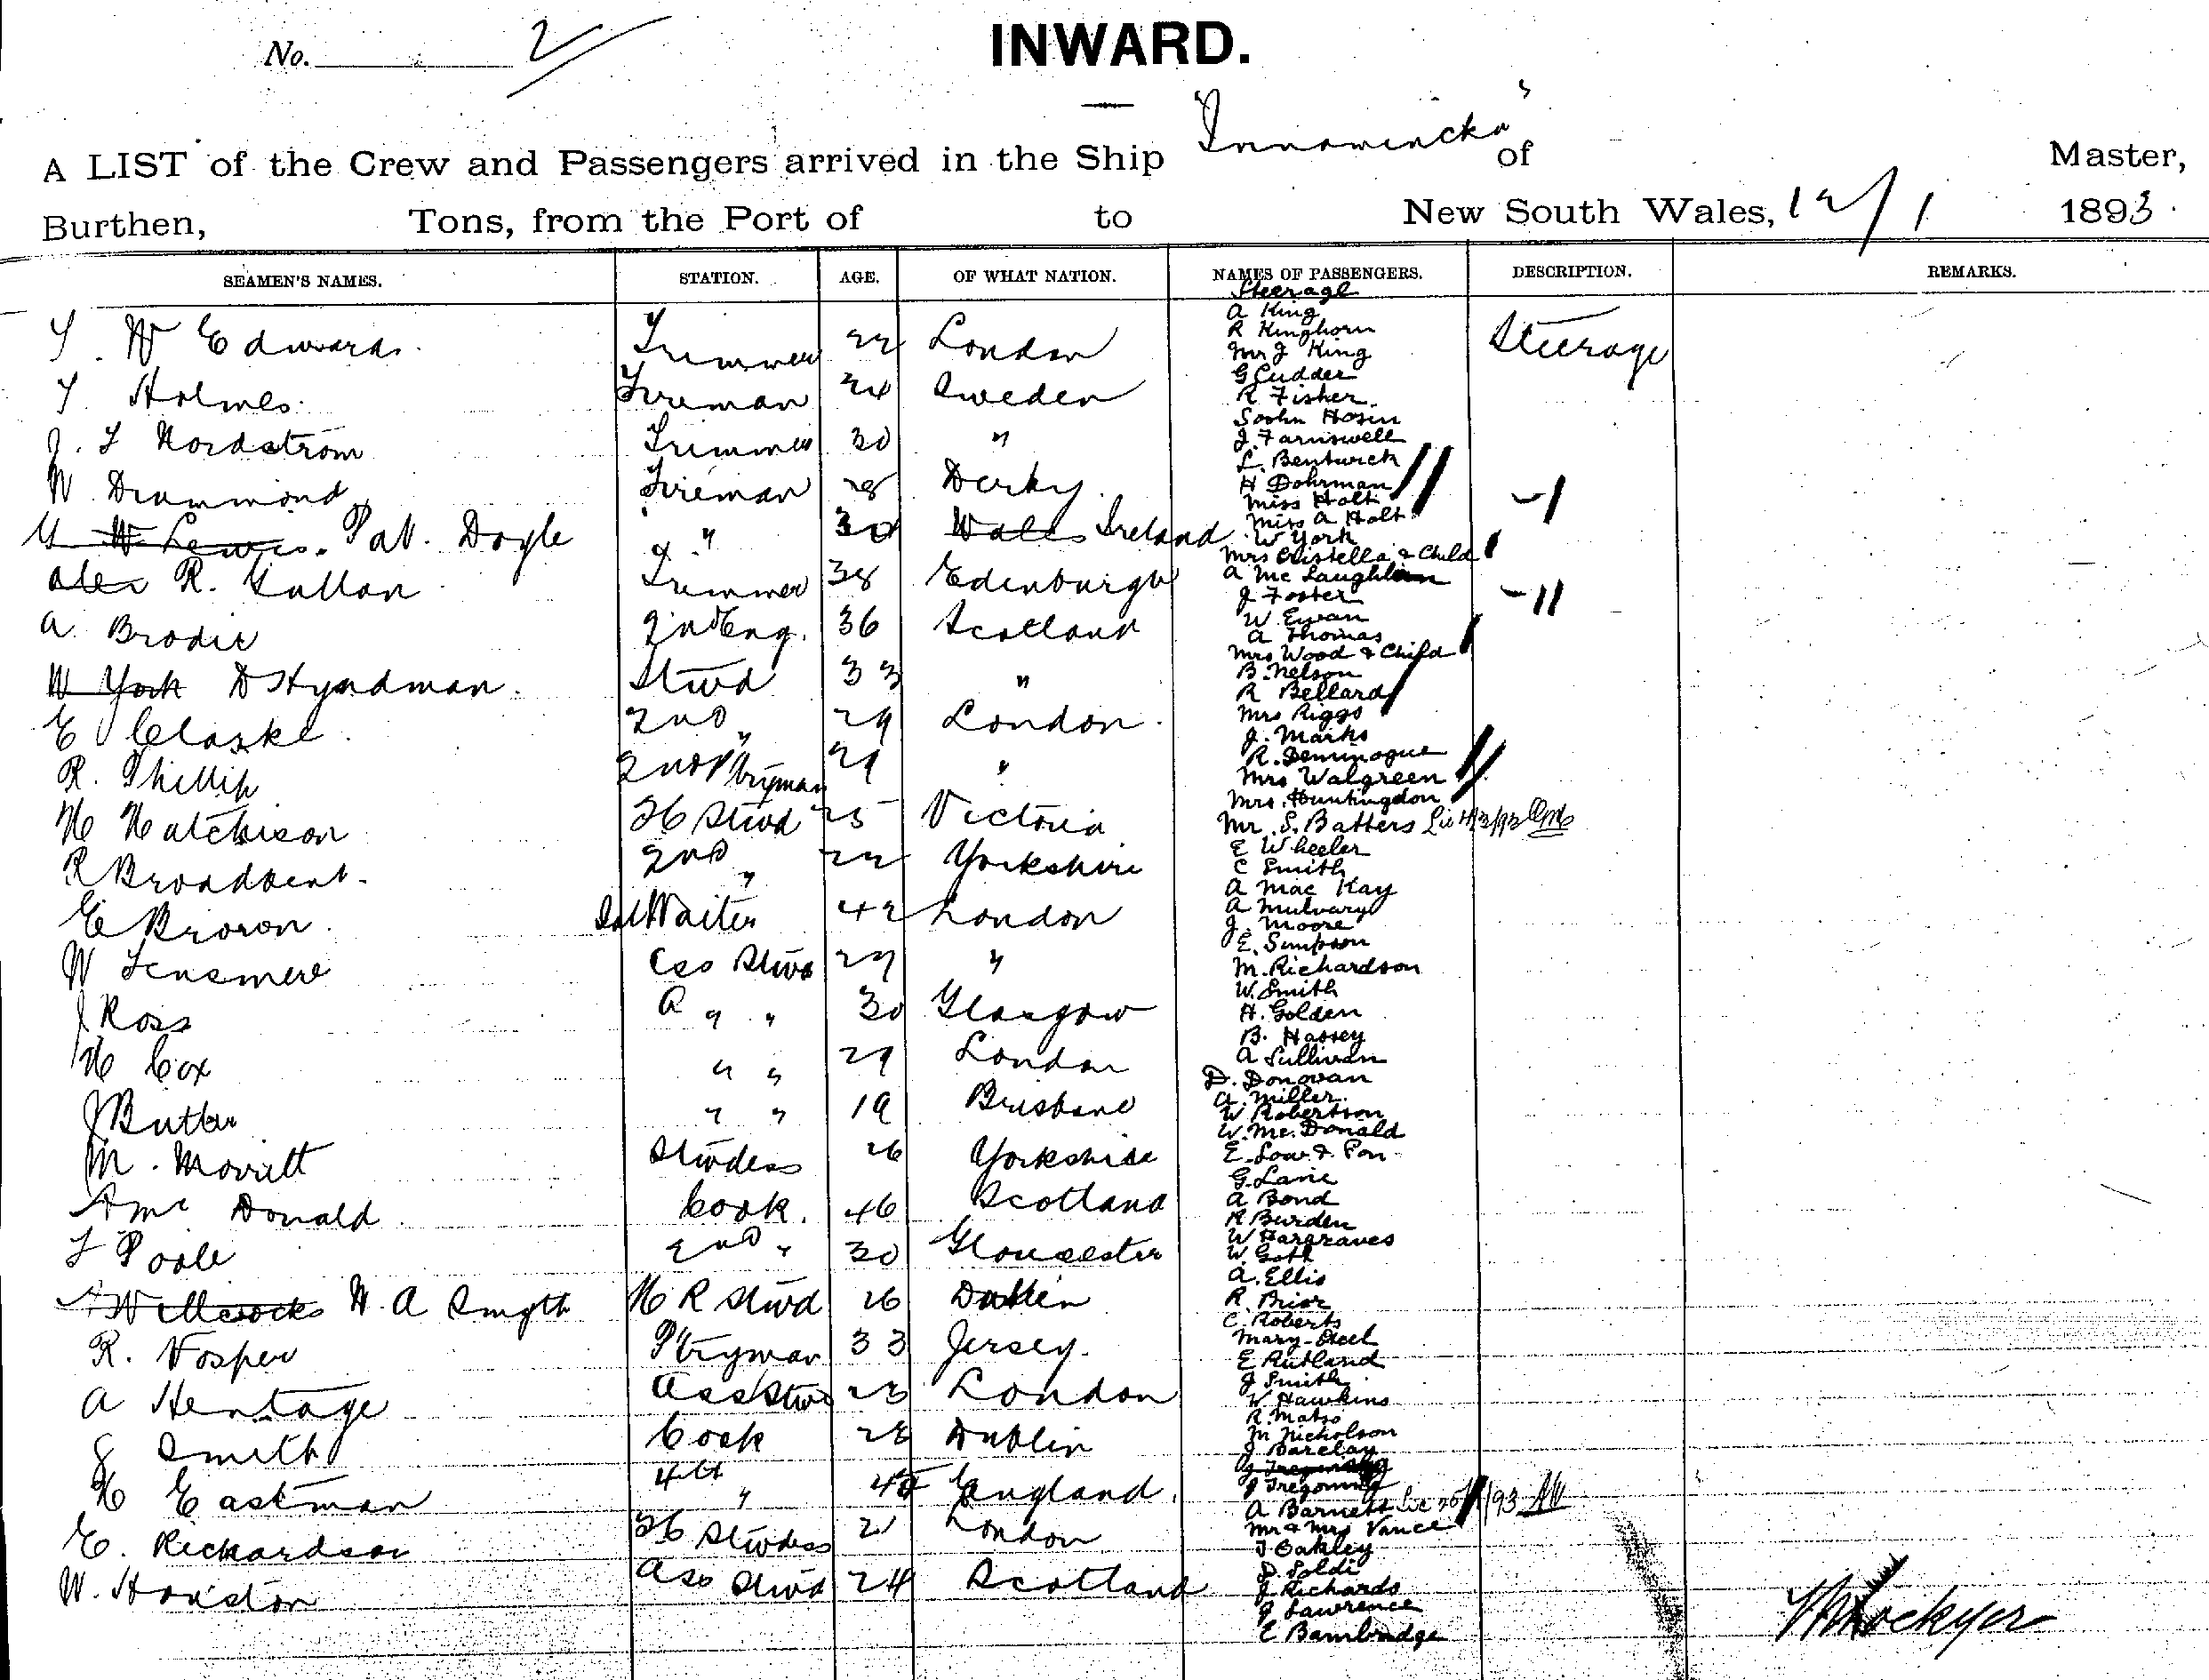 No. 2
INWARD.
A LIST of the Crew and Passengers arrived in the Ship "Innamincka" of Master,
Burthen, Tons, from the Port of to New South Wales, 12/1 1893
SEAMEN'S NAMES. STATION. AGE. OF WHAT NATION. NAMES OF PASSENGERS. DESCRIPTION. REMARKS.
W Edwards Trimmer 22 London
Holmes Fireman 24 Sweden
Nordstrom Trimmer 30 "
W Drummond Fireman 28 Derby
W Lewis Pat. Doyle " 30 Wales Ireland
Alex R. Gullan Trimmer 38 Edinburgh
A. Brodie 2nd Eng. 36 Scotland
W York D Hyndman Stwd 33 "
E Clarke 2nd " 29 London
R. Phillip 2nd Ptryman 29 "
H Hutchison Stwd 25 Victoria
R Broadbent 2nd " 22 Yorkshire
E Brown Waiter 42 London
W Stwd 29 "
J Ross A " " 30 Glasgow
H Cox " " 29 London
J Butler " " 19 Brisbane
M. Morritt Stwdess 26 Yorkshire
A Mc Donald Cook. 46 Scotland
Poole 2nd " 30 Gloucester
Willcocks A Smyth Stwd 26 Dublin
R. Vosper Ptryman 33 Jersey.
A Hentage Ass Stwd 23 London
Smith Cook 28 Dublin
H Eastman 4th " 45 England
E. Richardson Stwdess 21 London
W. Houston Ass Stwd 24 Scotland
Steerage
A King
R Kinghorn
Mr J King
G Cudder
R Fisher
J. Farnswell
L. Bentwich
H Dohrman
Miss Holt
Miss A Holt
W York
Mrs Cristella & Child
A Mc Laughlin
J Foster
W Ewan
A Thomas
Mrs Wood & Child
B. Nelson
R Bellard
Mrs Riggs
J. Marks
R. Deminogue
Mrs Walgreen
Mrs. Huntingdon
Mr S. Batters
E Wheeler
C Smith
A Mac Kay
A Mulvary
J. Moore
E. Simpson
M. Richardson
W. Smith
H. Golden
B. Hassey
A Sullivan
D. Donovan
A. Miller
W Robertson
W. Mc. Donald
G. Lane
A Bond
R Burden
W Hargraves
W. Goth
A. Ellis
R. Brior
C. Roberts
Mary Steel
E Rutland
J Smith
W Hawkins
M Nicholson
J Barclay
J Tregoning
A Barnett
Mr & Mrs Vance
J Oakley
D. Soldi
J Richards
J Lawrence
E Bambridge
Steerage
Lockyer